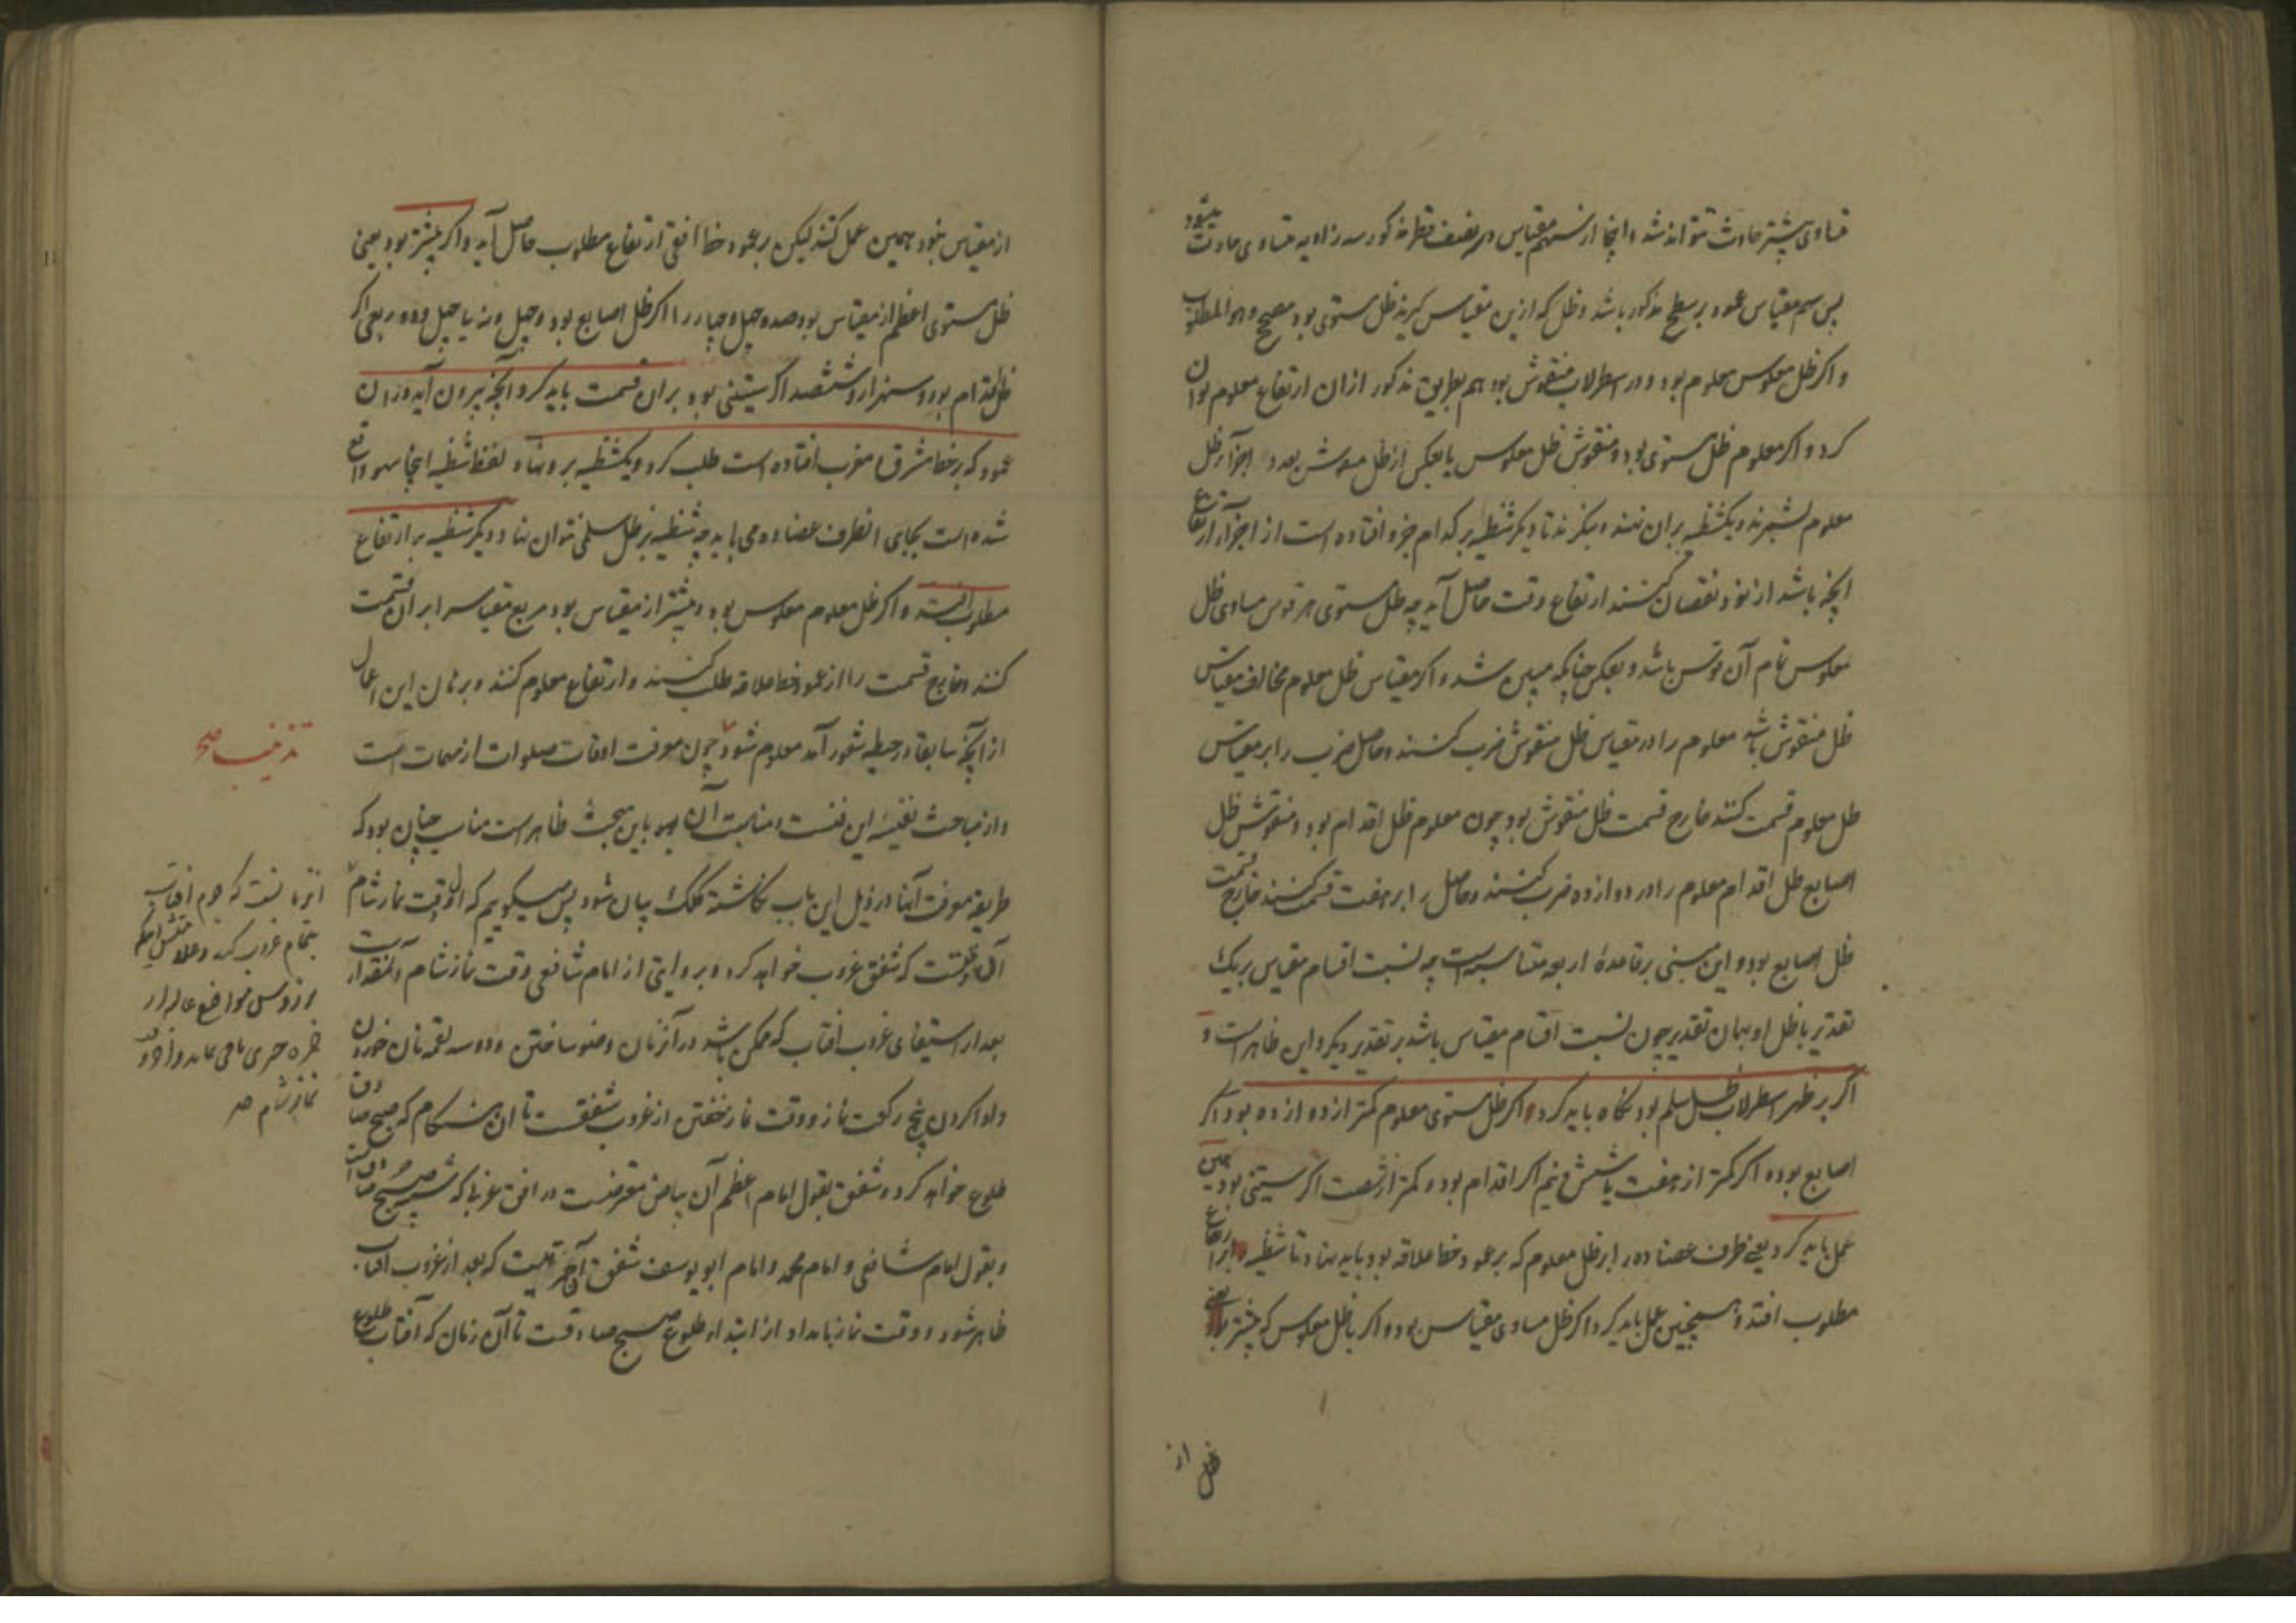 متساوی بیشتر حادث نتواند شد و اینجا از سهم مقیاس و نصف قطر مذکور سه زاویه متساوی حادث میشود
پس سهم مقیاس عمود بر سطح مذکور باشد و ظل که ازین مقیاس گیرند ظل مستوی بود صحیح و هو المطلوب
و اکر ظل معکوس معلوم بود و در اسطرلاب منقوش بود هم بطریق مذکور ازان ارتفاع معلوم توان
کرد و اکر معلوم ظل مستوی بود و منقوش ظل معکوس یا بعکس از ظل منقوش بعدد اجزآر ظل
معلوم بشمرند و یکشظیه بران نهند و بنکرند تا دیکر شظیه بر کدام جزو افتاده است از اجزآر ارتفاع
انچه باشد از نود نقصان کنند ارتفاع وقت حاصل آید چه ظل مستوی هر قوس مساوی ظل
معکوس تمام آن قوس باشد و بعکس چنانچه مبین شد و اکر مقیاس ظل معلوم مخالف مقیاس
ظل منقوش باشد معلوم را در مقیاس ظل منقوش ضرب کنند و حاصل ضرب را بر مقیاس
ظل معلوم قسمت کنند خارج قسمت ظل منقوش بود چون معلوم ظل اقدام بود و منقوش ظل
اصابع ظل اقدام معلوم را در دوازده ضرب کنند و حاصل را بر هفت قسمت کنند خارج قسمت
ظل اصابع بود و این مبنی بر قاعدهٔ اربعه متناسبه است چه نسبت اقسام مقیاس بر یک
تقدیر با ظل او بهمان تقدیر چون نسبت اقسام مقیاس باشد بر تقدیر دیکر و این ظاهر است و
اکر بر ظهر اسطرلاب ظل سلم بود نکاه باید کرد و اکر ظل مستوی معلوم کمتر از دوازده بود اکر
اصابع بود و اکر کمتر از هفت یا شش و نیم اکر اقدام بود و کمتر از شصت اکر ستینی بود همین
عمل باید کرد یعنی طرف عضاده را بر ظل معلوم که بر عمود خط علاقه بود باید نهاد تا شظیه بر ارتفاع
مطلوب افتد و همچنین عمل باید کرد اکر ظل مساوی مقیاس بود و اکر با ظل معکوس که بیشتر
ظل از
از مقیاس نبود همین عمل کنند لیکن بر عمود خط افق ارتفاع مطلوب حاصل آید و اکر بیشتر بود یعنی
ظل مستوی اعظم از مقیاس بود صد و چهل و چهار را اکر ظل اصابع بود و چهل و نه یا چهل و دو و ربعی اکر
ظل اقدام بود و سه هزار و ششصد اکر ستینی بود بران قسمت باید کرد و آنچه بیرون آید در ان
عمود که بر خط مشرق و مغرب افتاده است طلب کرد و یکشظیه برو نهاد و لفظ شظیه اینجا سهو واقع
شده است بجای ان طرف عضاده می باید چه شظیه بر ظل سلمی نتوان نهاد و دیکر شظیه بر ارتفاع
مطلوب افتد و اکر ظل معلوم معکوس بود و بیشتر از مقیاس بود مربع مقیاس را بران قسمت
کنند و خارج قسمت را از عمود خط علاقه طلب کنند و ارتفاع معلوم کنند و برهان این اعمال
از آنچه سابقا در حیطه شعور آمد معلوم شود چون معرفت اوقات صلوات از مهمات است
و از مباحث نفیسه این فن است و مناسبت آن باین مبحث ظاهر است مناسب چنان بود که
طریقه معرفت آنها در ذیل این باب نکاشته کلک بیان شود پس میکویم که اول وقت نماز شام
آن وقتست که شفق غروب خواهد کرد و بروایتی از امام شافعی وقت نماز شام آن مقدار است
بعد از استیفای غروب افتاب که ممکن باشد در آنزمان وضو ساختن و دو سه لقمه نان خوردن
و ادا کردن پنج رکعت نماز و وقت نماز خفتن از غروب شفقست تا ان هنکام که صبح صادق
طلوع خواهد کرد و شفق بقول امام اعظم آن بیاض معترضست در افق غربی که شبیه صبح صادق است
و بقول امام شافعی و امام محمد و امام ابو یوسف شفق آن حمرتیست که بعد از غروب افتاب
ظاهر شود و وقت نماز بامداد از ابتداء طلوع صبح صادقست تا آن زمان که آفتاب طلوع
تذنیب صح
انزمانست که جرم افتاب
بتمام غروب کند و علامتش انکه
بر رؤس مواضع عالیه از
حمرة چیزی باقی نماند و اخر وقت
نماز شام صح